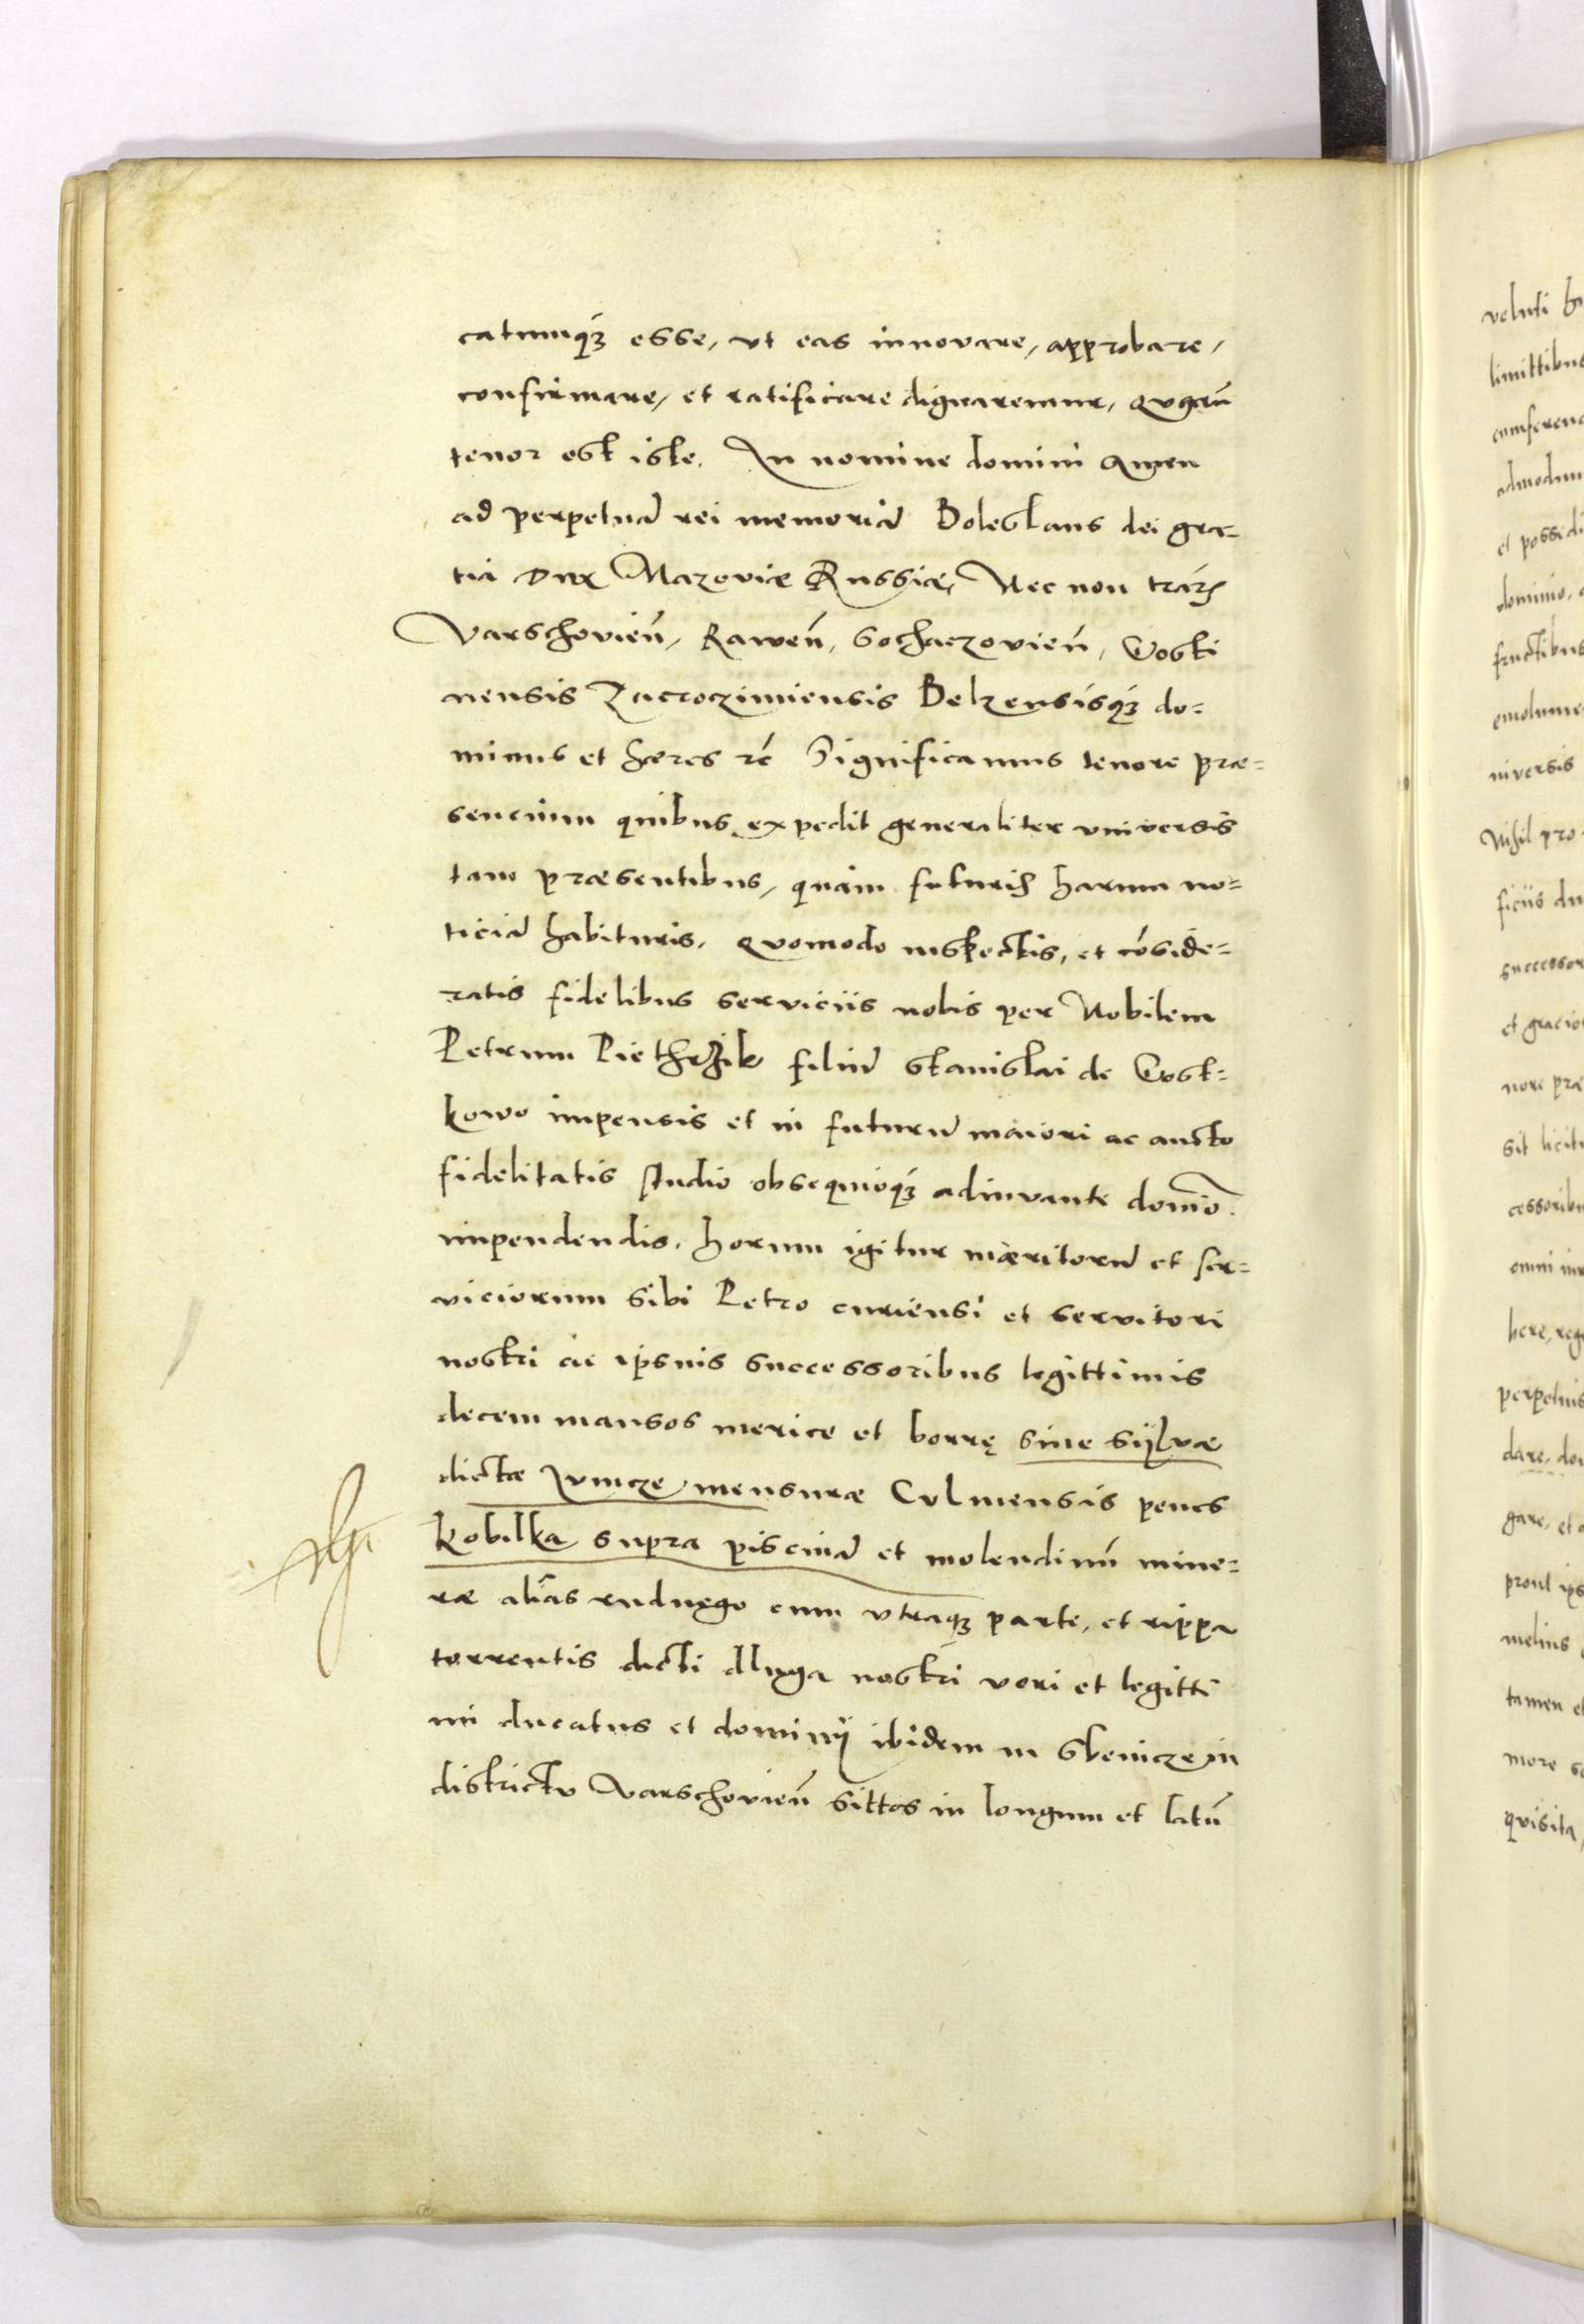 catumq́ꝫ esse, vt eas innovare, approbare,
confirmare, et ratificare dignaremur, Qvarū
tenor est iste. In nomine domini Amen
ad perpetuā rei memoriā Boleslaus dei gra-
tia Dux Mazoviæ Russiæ, Nec non trarꝫ
Varschovień, Raweń, Sochaczovień, Gosti
nensis Zacroczimiensis Belzensisq́ꝫ do-
minus et hæres ꝛc̄ Significamus tenore præ-
sencium quibus expedit generaliter universis
tam præsentibus, quàm futuris harum no-
ticiā habituris. Qvomodo inspectis, et cōside-
ratis fidelibus serviciis nobis per Nobilem
Petrum Piethrzik filiū Stanislai de Gost-
kowo impensis et in futurū maiori ac aucto
fidelitatis studio obsequioq́ꝫ adiuvante domīo
impendendis. horum igitur mæritorū et ser-
viciorum sibi Petro curiensi et servitori
nostri ac ipsius successoribus legittimis
decem mansos merice et borrę sive sijlvæ
dictæ Jvnicze mensuræ Cvlmensis penes
Kobilka supra pisciná et molendinū mine-
ræ aliàs rudnego cum vtraqꝫ parte, et rippa
torrentis dicti dluga nostri veri et legitti
mi ducatus et dominij ibidem in Sbenicze in
districtv Varschovień sittos in longum et latū
veluti
limittibus
admodum
et possidi
dominio,
fructibus
niversis
Nihil pro
ficiis
successor
et gracio
nore præ
sit licit
cessoribu
omni
here, reg
perpetuis
dare, do
gare, et
prout ips
melius
tamen et
more
qvisita,